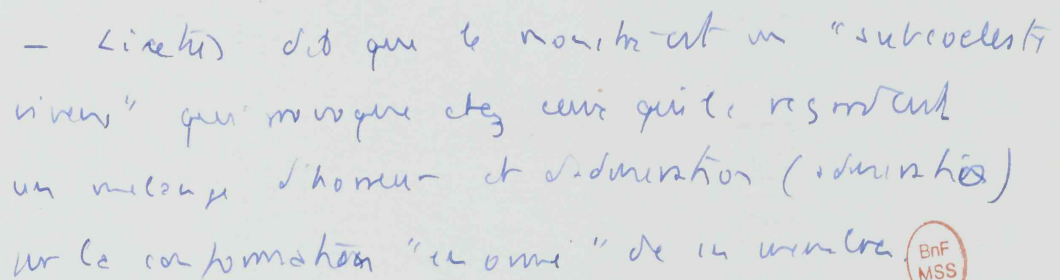 – Licetus dit que le monstre est un "subcoeleste
vivens" qui provoque chez ceux qui le regardent
un mélange d'horreur et d'admiration (admiratio)
sur la conformation "enorme" de ses membres
BnF
MSS